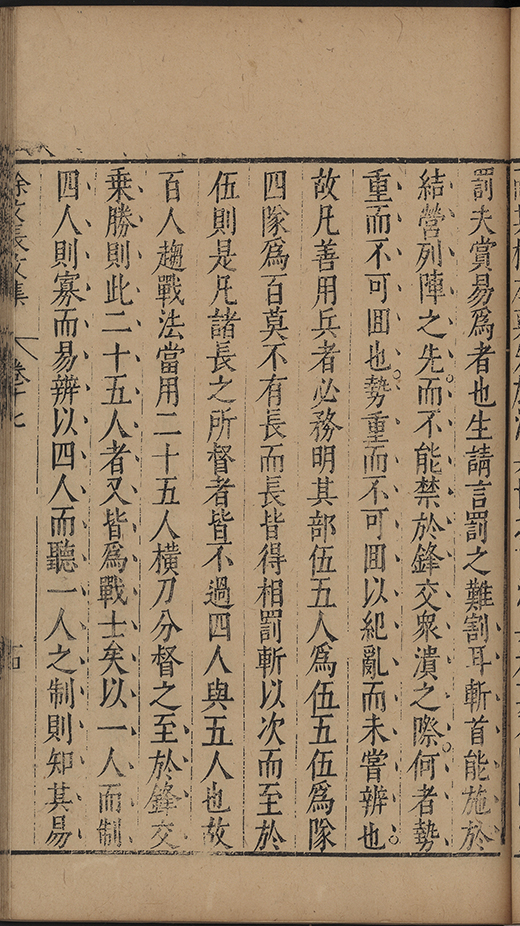 罰夫賞易爲者也生請言罰之難割耳斬首能施於
結營列陣之先而不能禁於鋒交衆潰之際何者勢
重而不可回也勢重而不可回以紀亂而未嘗辨也
故凡善用兵者必務明其部伍五人爲伍五伍爲隊
四隊爲百莫不有長而長皆得相罰斬以次而至於
伍則是凡諸長之所督者皆不過四人與五人也故
百人趨戰法當用二十五人橫刀分督之至於鋒交
乗勝則此二十五人者又皆爲戰士矣以一人而制
四人則寡而易辨以四人而聽一人之制則知其易
徐文長文集 卷十七